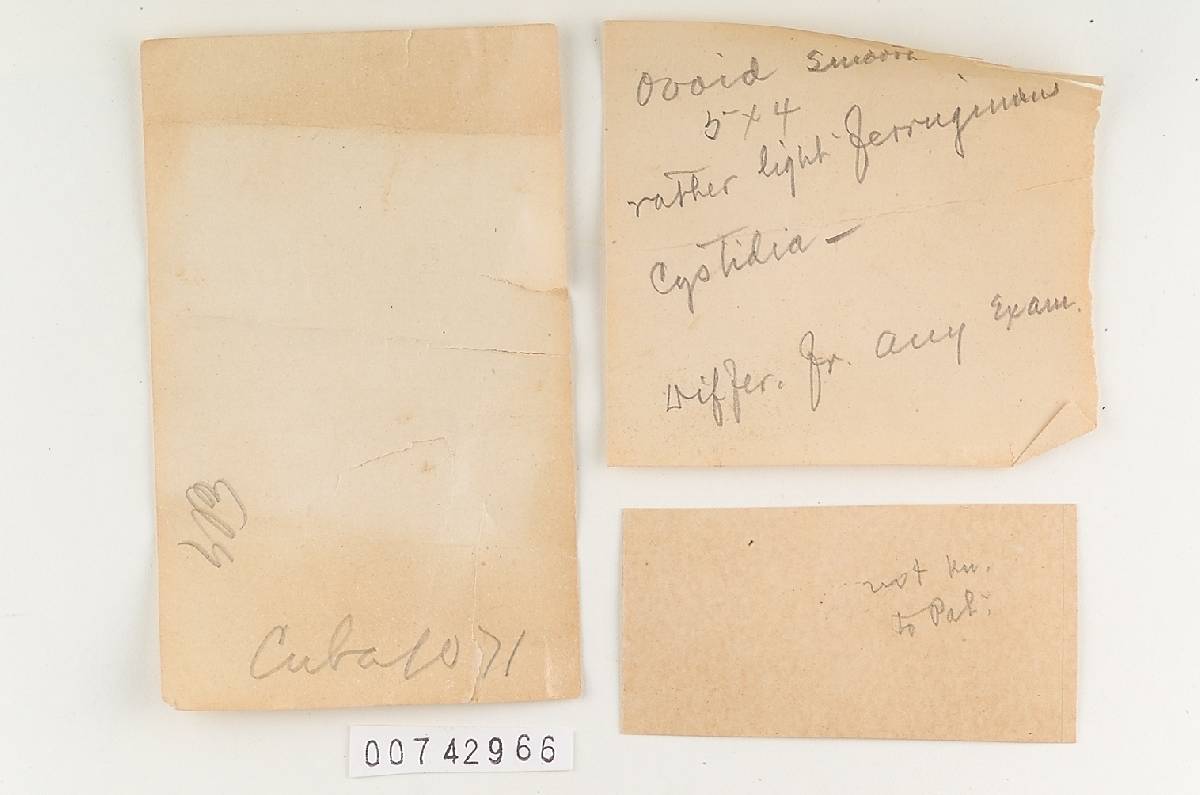 Cuba 1071
00742966
Ovoid smooth
5 x 4
rather light ferruginous
Cystidia —
Differ. fr. any Exam.
not kn.
to Pat.